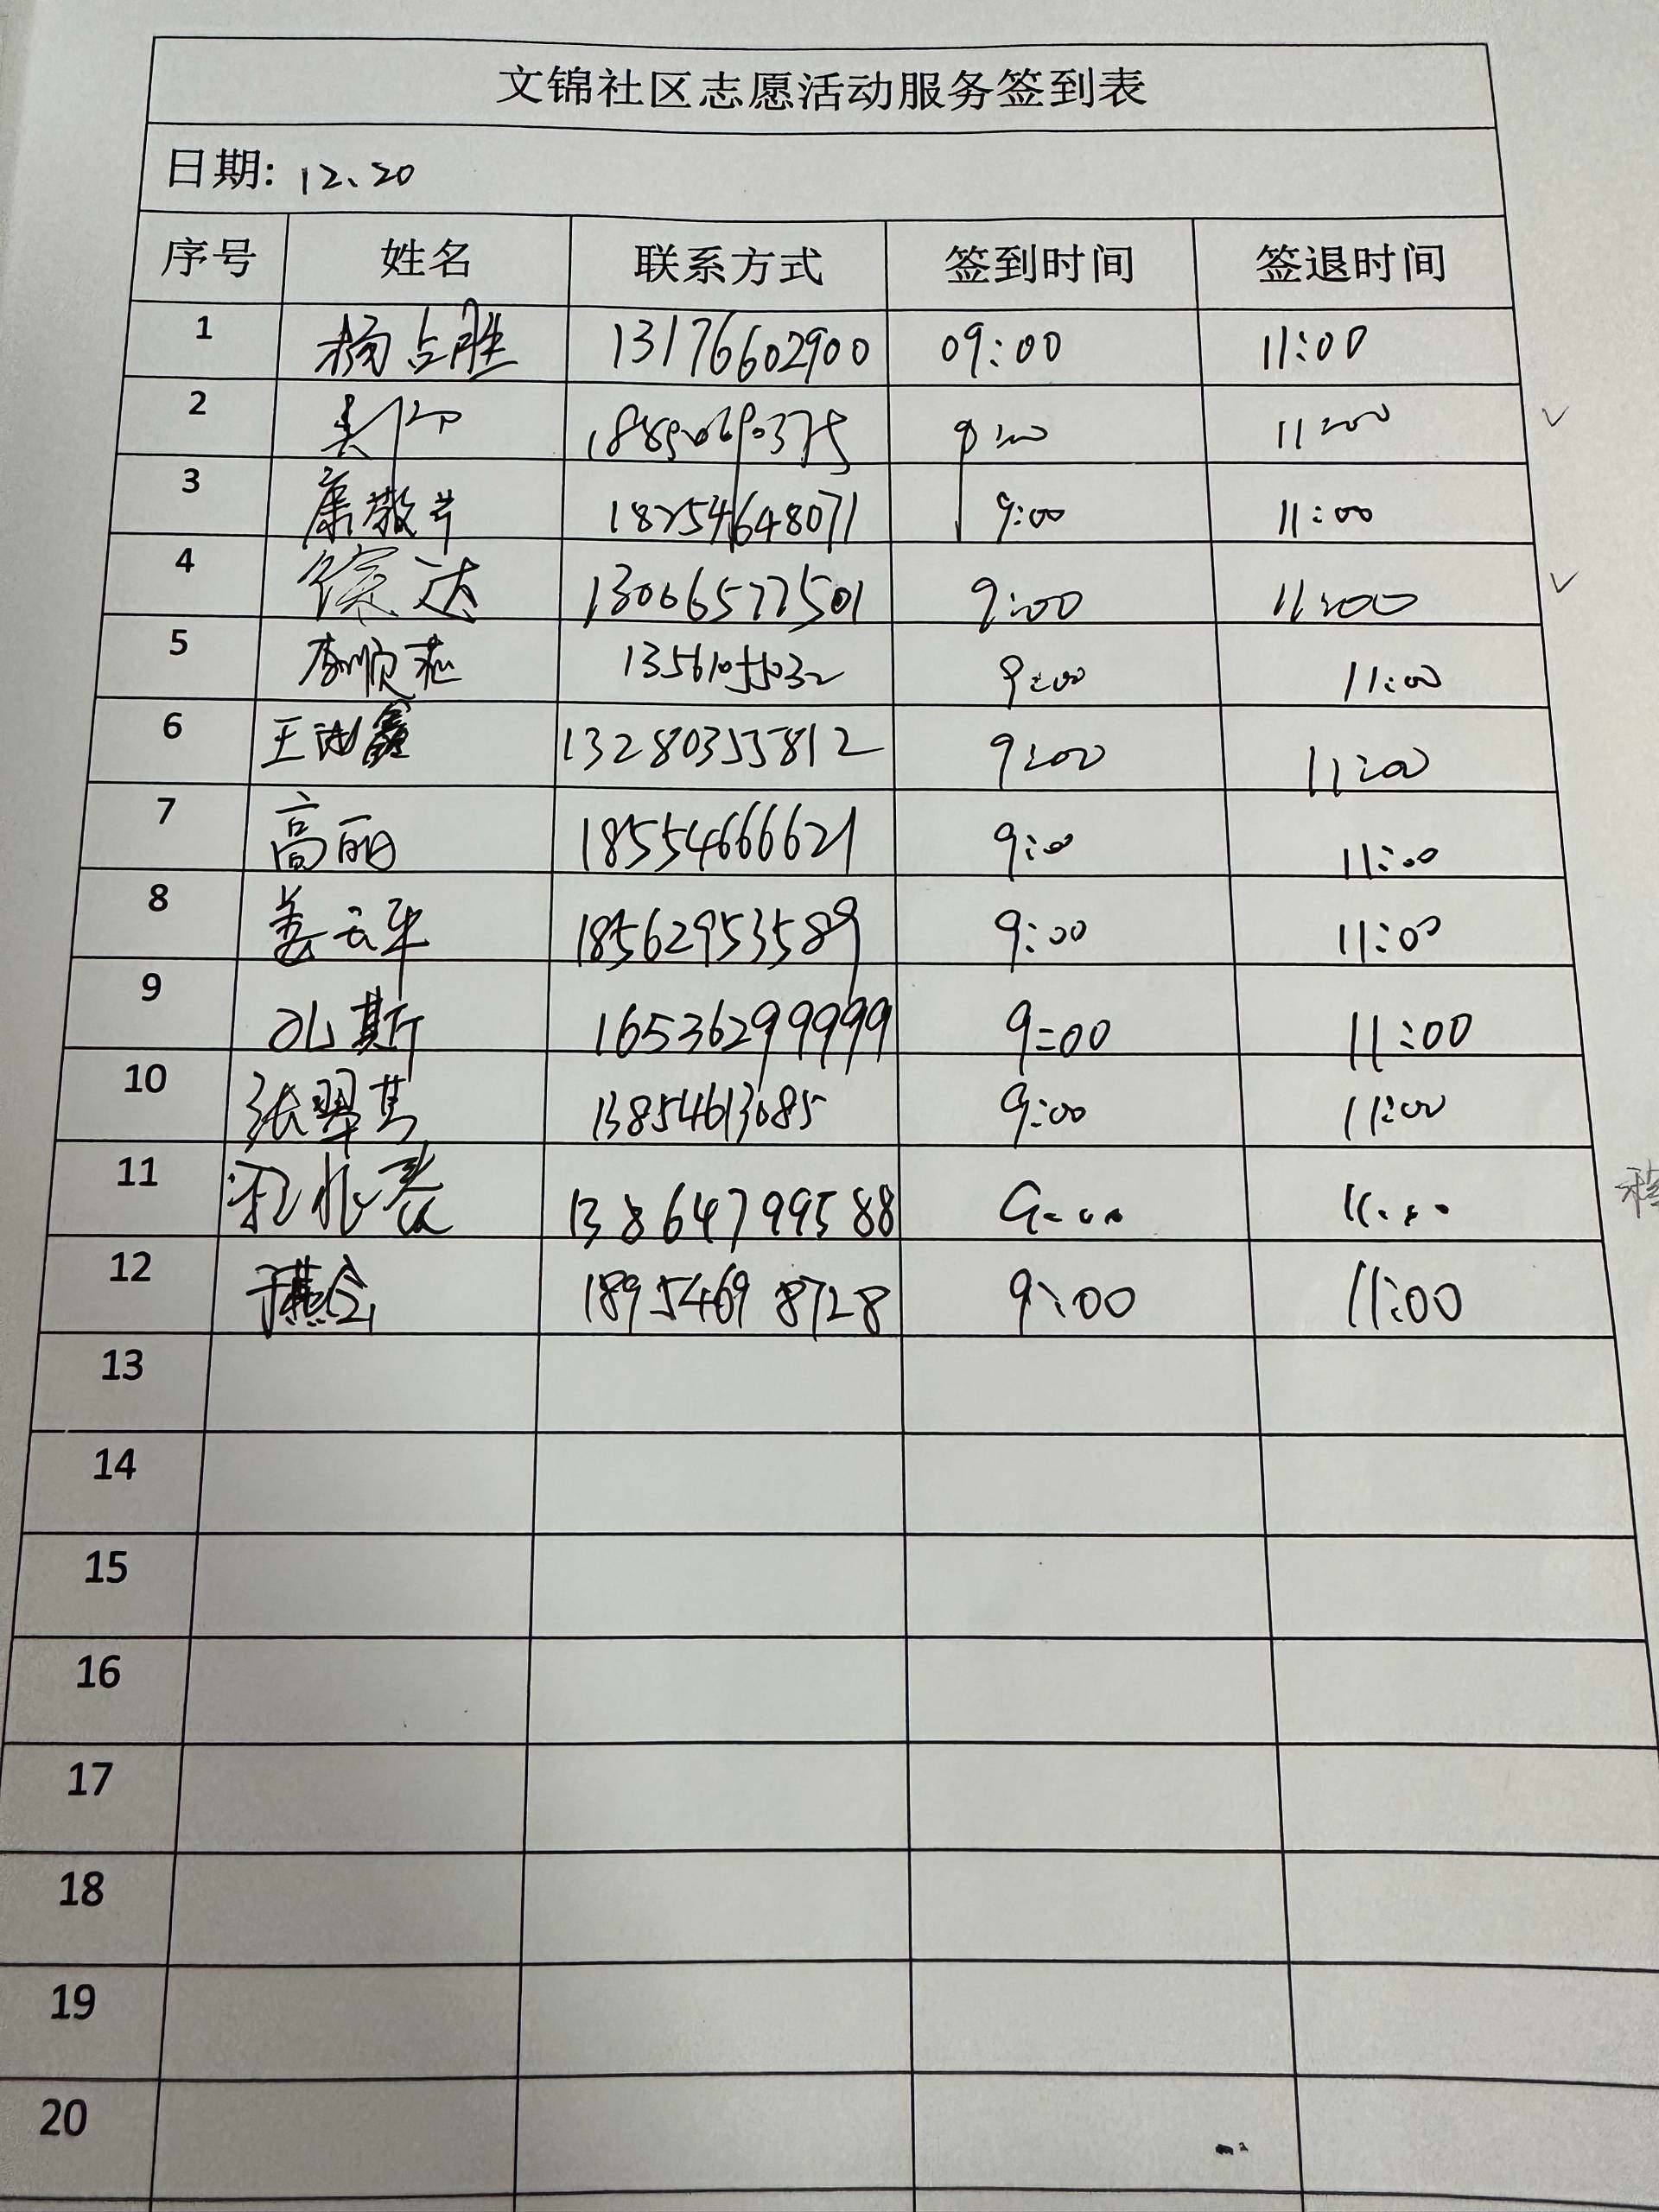 文锦社区志愿活动服务签到表
日期: 12、20
序号 姓名 联系方式 签到时间 签退时间
1 杨占胜 13176602900 09:00 11:00
2 11:00
3 康敬 18254648071 9:00 11:00
4 徐达 13066577501 9:00 11:00
5 李顺 9:00 11:00
6 王 鑫 13280355812 9:00 11:00
7 高丽 18554666621 9:00 11:00
8 姜云华 18562953589 9:00 11:00
9 斯 16536299999 9=00 11:00
10 张翠 13854613085 9:00 11:00
11 13864799588
12 于燕 18954698728 9:00 11:00
13
14
15
16
17
18
19
20